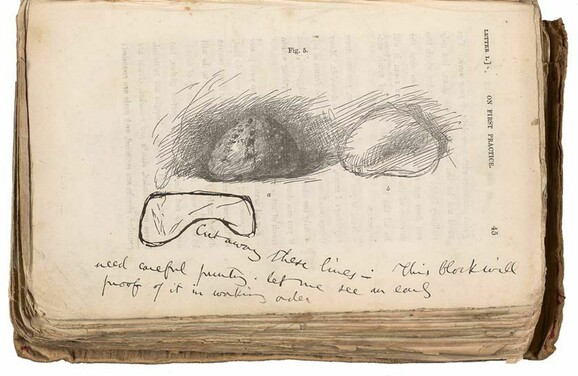 LETTER I.]
ON FIRST PRACTICE.
45
Fig. 5.
a
b
Cut away these lines - This block will
need careful printing. Let me see an early
proof of it in working order